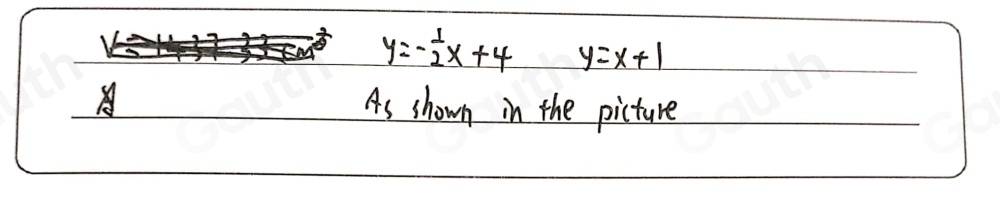 y=-1/2x+4 y=x+1
As shown in the picture